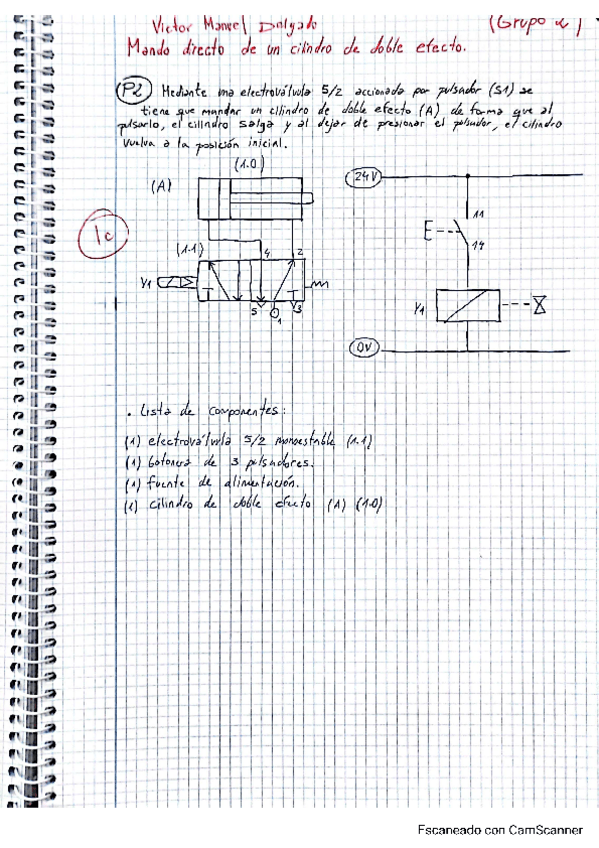 Victor Manuel Dalgado
(Grupo 2)
Mando directo de un cilindro de doble efecto.
P2 Mediante una electroválvula 5/2 accionada por pulsador (S1) se
tiene que mandar un cilindro de doble efecto (A) de forma que al
pulsarlo, el cilindro salga y al dejar de presionar el pulsador, el cilindro
vuelva a la posición inicial.
(1.0)
(A)
24V
11
E
14
(1.1)
4 2
Y1
5 1 3
Y1
0V
. Lista de componentes:
(1) electroválvula 5/2 monoestable (1.1)
(1) botonera de 3 pulsadores.
(1) fuente de alimentación.
(1) cilindro de doble efecto (A) (1.0)
Escaneado con CamScanner